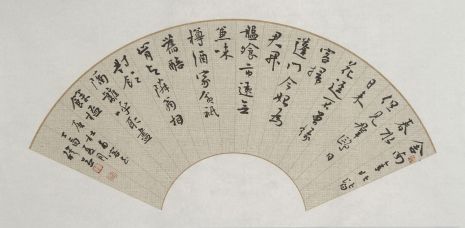 舍南舍北皆
春水
但見羣鷗日
日來
花徑不曾緣
客掃
蓬門今始為
君開
盤飧市遠無
兼味
樽酒家貧祇
舊醅
肯與鄰翁相
對飲
隔籬呼取盡
餘杯
唐杜甫